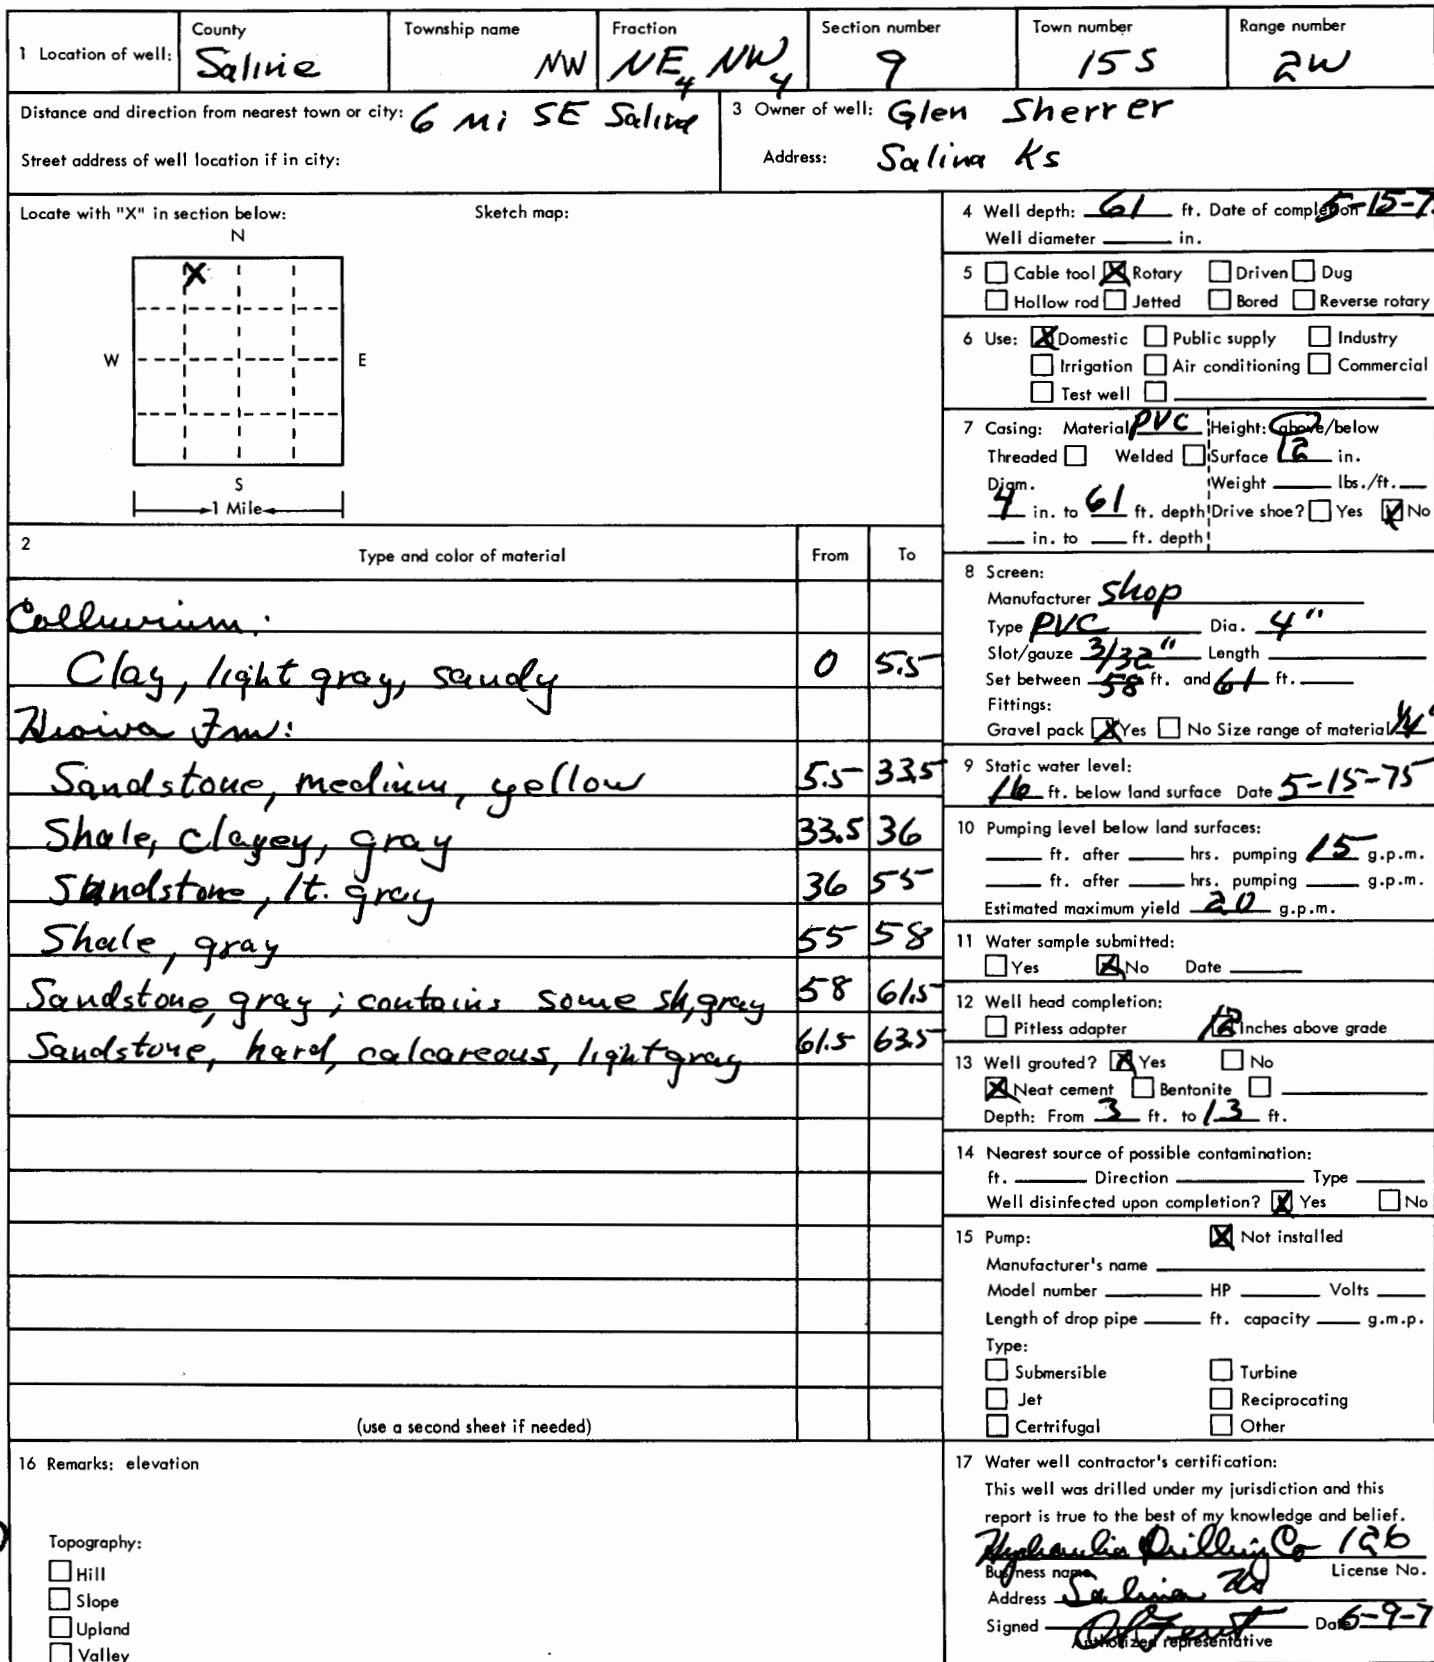 1 Location of well: County Saline Township name NW Fraction NE 4 NW 4 Section number 9 Town number 15 S Range number 2W
Distance and direction from nearest town or city: 6 Mi SE Salina
Street address of well location if in city:
3 Owner of well: Glen Sherrer
Address: Salina Ks
Locate with "X" in section below: Sketch map:
N
X
W E
S
1 Mile
2 Type and color of material From To
Colluvium:
Clay, light gray, sandy 0 5.5
Kiowa Fm:
Sandstone, medium, yellow 5.5 33.5
Shale, clayey, gray 33.5 36
Sandstone, lt. gray 36 55
Shale, gray 55 58
Sandstone, gray; contains some sh, gray 58 61.5
Sandstone, hard, calcareous, light gray 61.5 63.5
(use a second sheet if needed)
4 Well depth: 61 ft. Date of completion 5-15-7
Well diameter in.
5 Cable tool X Rotary Driven Dug
Hollow rod Jetted Bored Reverse rotary
6 Use: X Domestic Public supply Industry
Irrigation Air conditioning Commercial
Test well
7 Casing: Material PVC Height: above/below
Threaded Welded Surface 12 in.
Diam. Weight lbs./ft.
4 in. to 61 ft. depth Drive shoe? Yes X No
in. to ft. depth
8 Screen:
Manufacturer Shop
Type PVC Dia. 4"
Slot/gauze 3/32" Length
Set between 58 ft. and 61 ft.
Fittings:
Gravel pack X Yes No Size range of material 1/4"
9 Static water level:
16 ft. below land surface Date 5-15-75
10 Pumping level below land surfaces:
ft. after hrs. pumping 15 g.p.m.
ft. after hrs. pumping g.p.m.
Estimated maximum yield 20 g.p.m.
11 Water sample submitted:
Yes X No Date
12 Well head completion:
Pitless adapter 12 Inches above grade
13 Well grouted? X Yes No
X Neat cement Bentonite
Depth: From 3 ft. to 13 ft.
14 Nearest source of possible contamination:
ft. Direction Type
Well disinfected upon completion? X Yes No
15 Pump: X Not installed
Manufacturer's name
Model number HP Volts
Length of drop pipe ft. capacity g.m.p.
Type:
Submersible Turbine
Jet Reciprocating
Certrifugal Other
16 Remarks: elevation
Topography:
Hill
Slope
Upland
Valley
17 Water well contractor's certification:
This well was drilled under my jurisdiction and this
report is true to the best of my knowledge and belief.
Hydraulic Drilling Co 126
Business name License No.
Address Salina Ks
Signed Date 6-9-7
Authorized representative